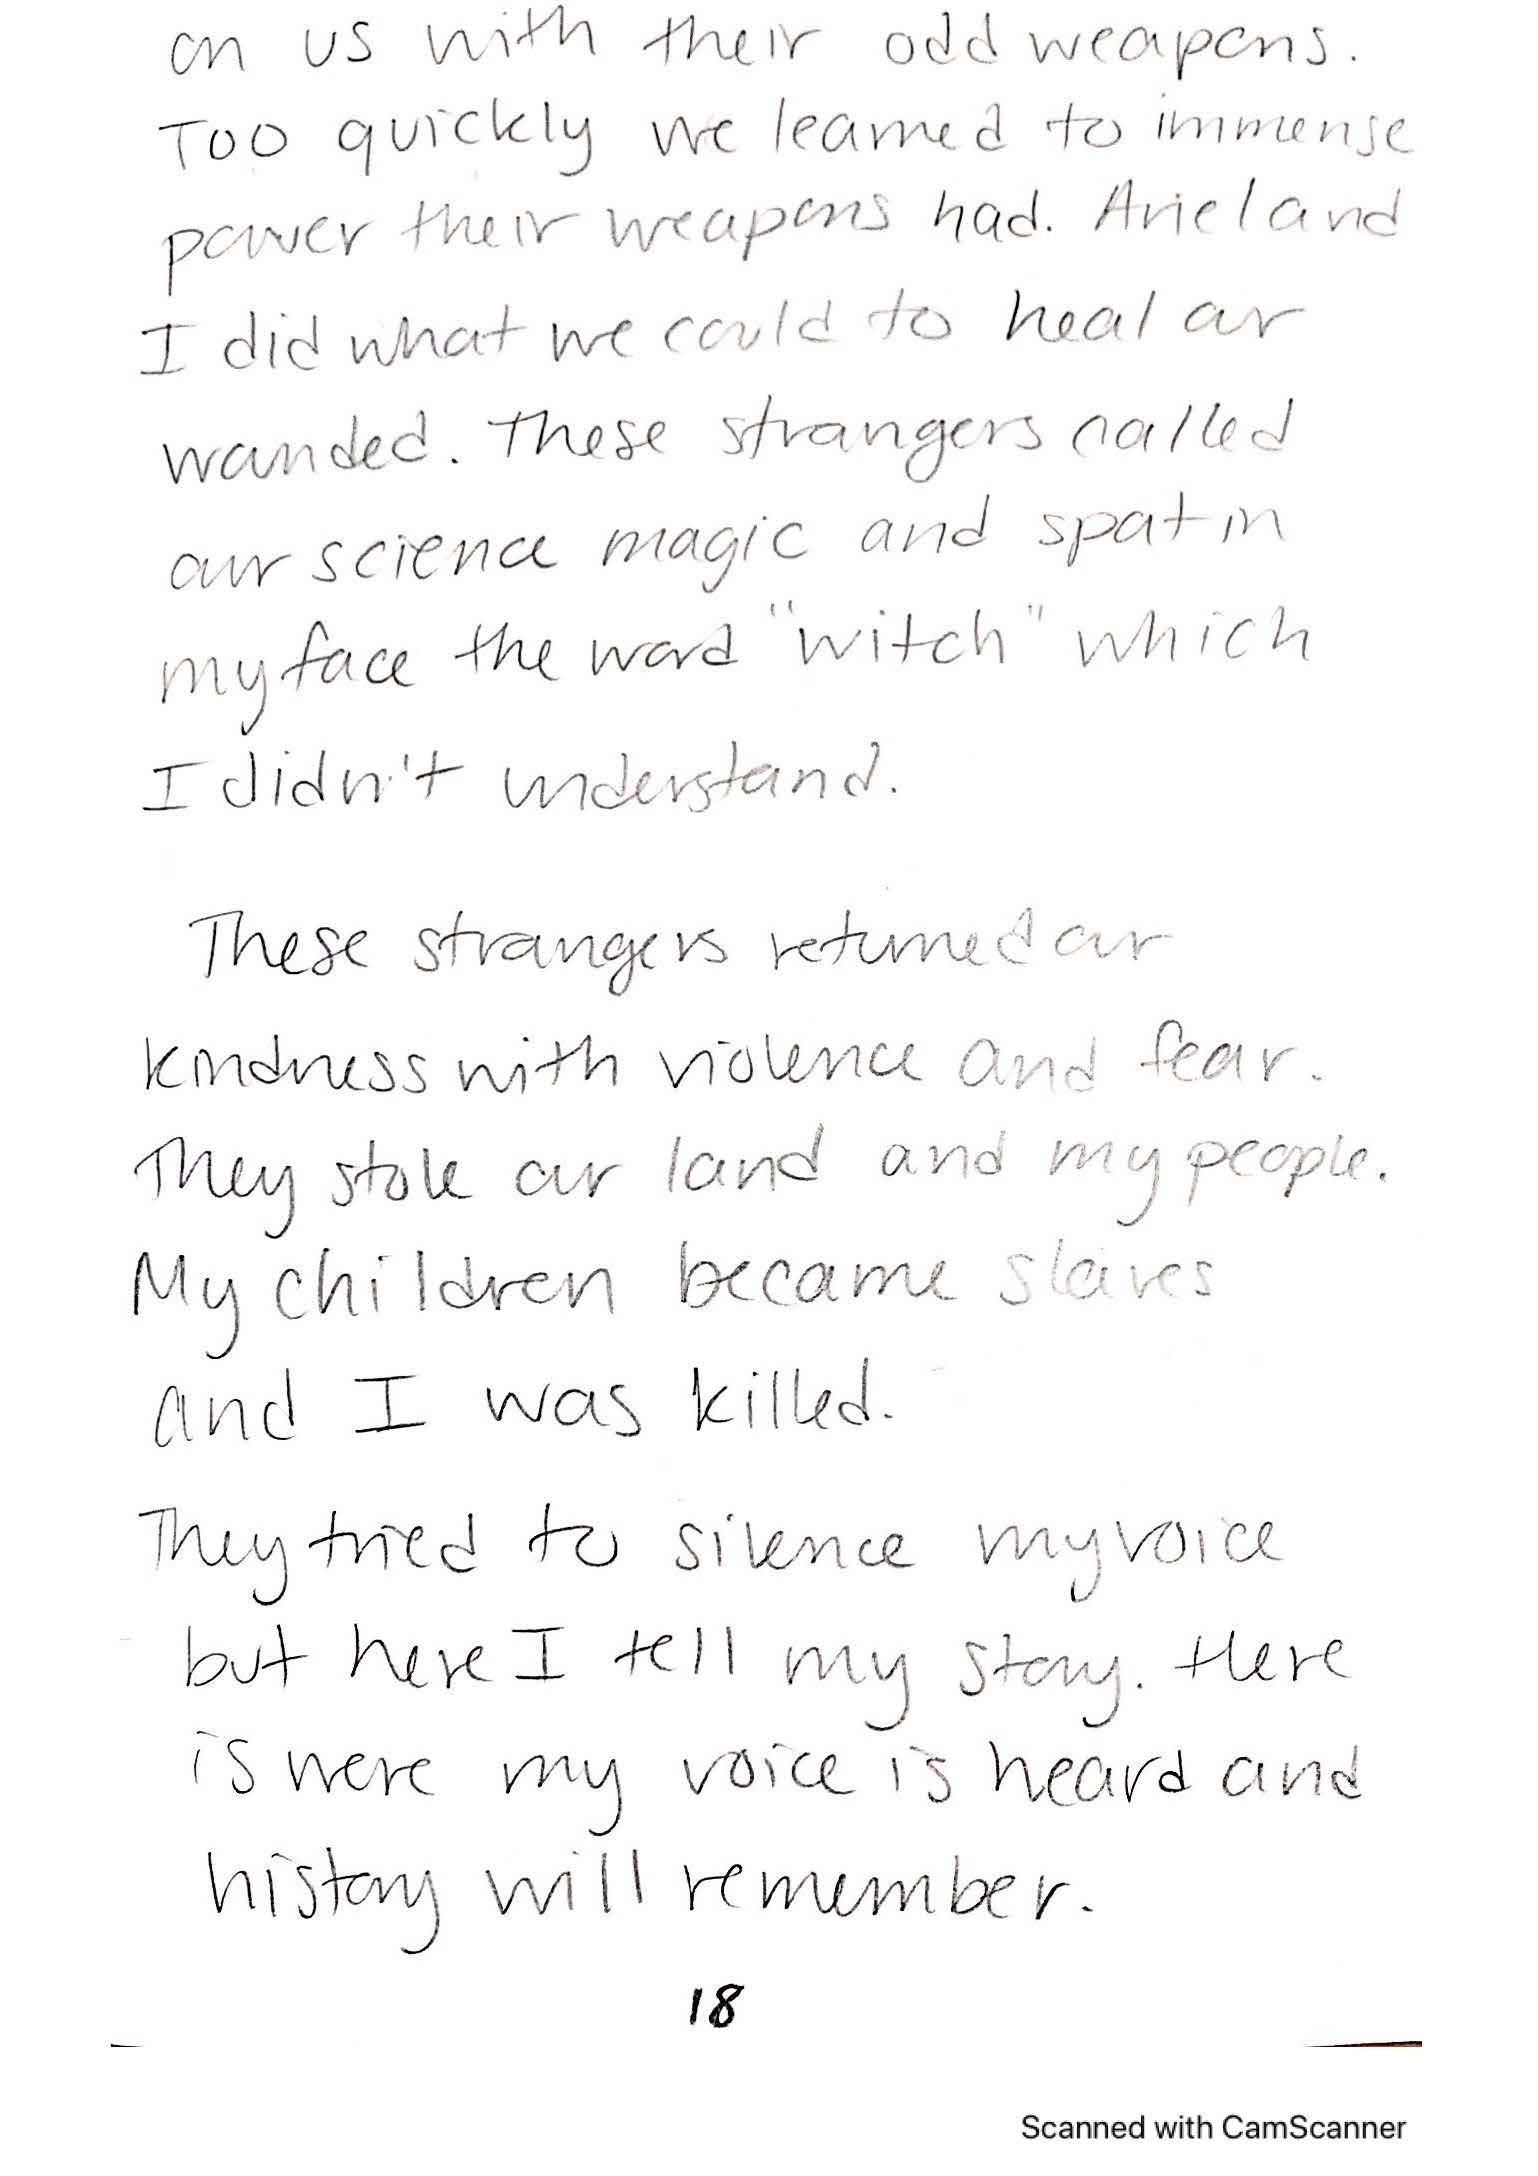 on us with their odd weapons.
Too quickly we learned to immense
power their weapons had. Ariel and
I did what we could to heal our
wounded. These strangers called
our science magic and spat in
my face the word "witch" which
I didn't understand.
These strangers returned our
kindness with violence and fear.
They stole our land and my people.
My children became slaves
and I was killed.
They tried to silence my voice
but here I tell my story. Here
is were my voice is heard and
history will remember.
18
Scanned with CamScanner